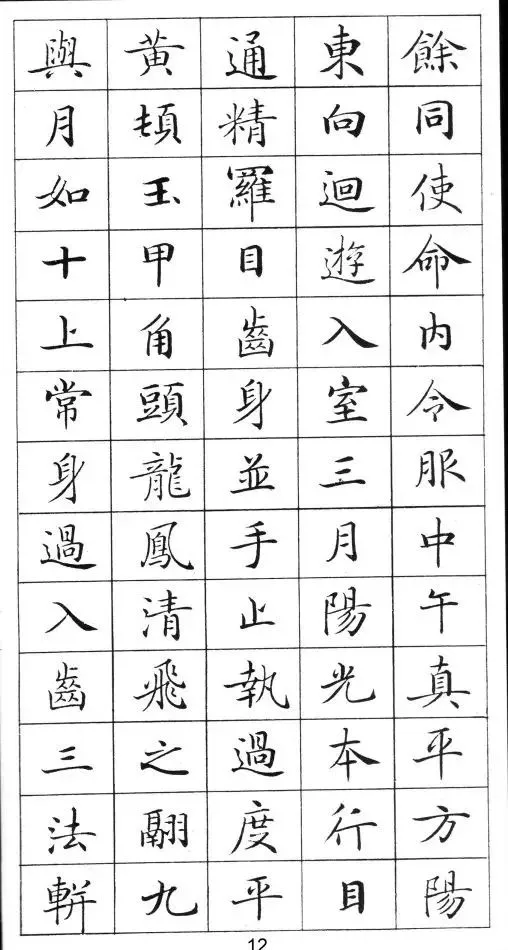 餘同使命内令服中午真平方陽
東向迴遊入室三月陽光本行目
通精羅目齒身並手止執過度平
黄頓玉甲角頭龍鳳清飛之翮九
與月如十上常身過入齒三法軿
12